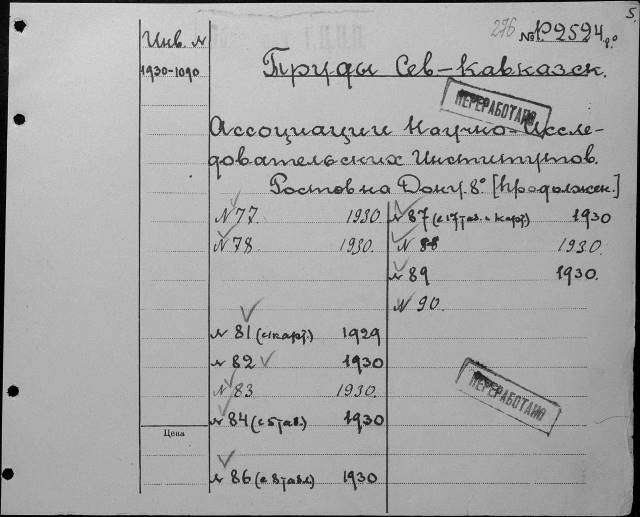 5.
276 № P2524 8°
Инв. №
1930-1090
Труды Сев-Кавказск.
ПЕРЕРАБОТАНО
Ассоциации Научно-Иссле-
довательских Институтов.
Ростов на Дону. 8° [продолжен.]
№ 77 1930.
№ 78 1930.
№ 81 (с 1 карт.) 1929
№ 82 1930
№ 83 1930.
№ 84 (с 5 таб.) 1930
№ 86 (с 8 табл.) 1930
№ 87 (с 17 таб. и карт.) 1930
№ 88 1930.
№ 89 1930.
№ 90.
ПЕРЕРАБОТАНО
Цена